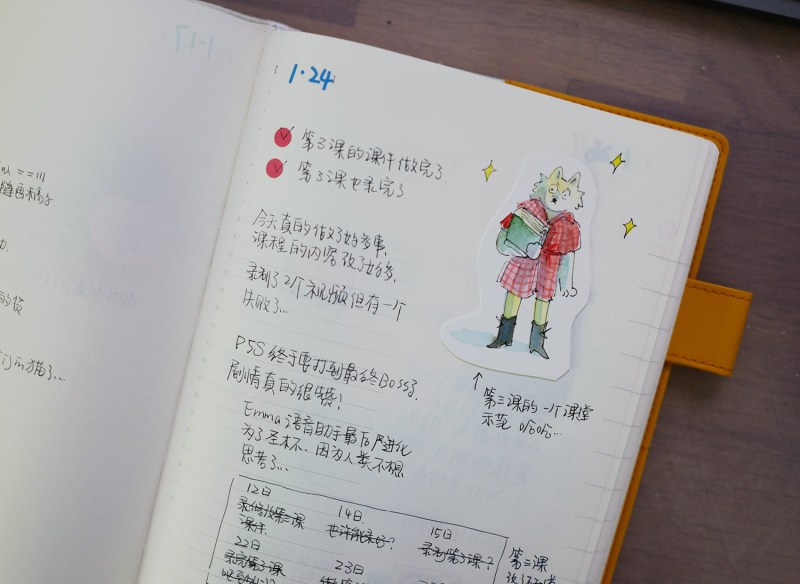 1·17
1·24
第3课的课件做完了
第3课也录完了
今天真的做了好多事,
课程的内容改了好多,
录制了2个视频但有一个
失败了…
P5S终于要打到最终Boss了,
剧情真的很赞!
Emma语音助手最后进化
为了圣杯、因为人类不想
思考了…
↑
第三课的一个课堂
示范 哈哈…
12日
课件
22日
14日
也许能录好?
23日
15日
录制第3课?
第三课